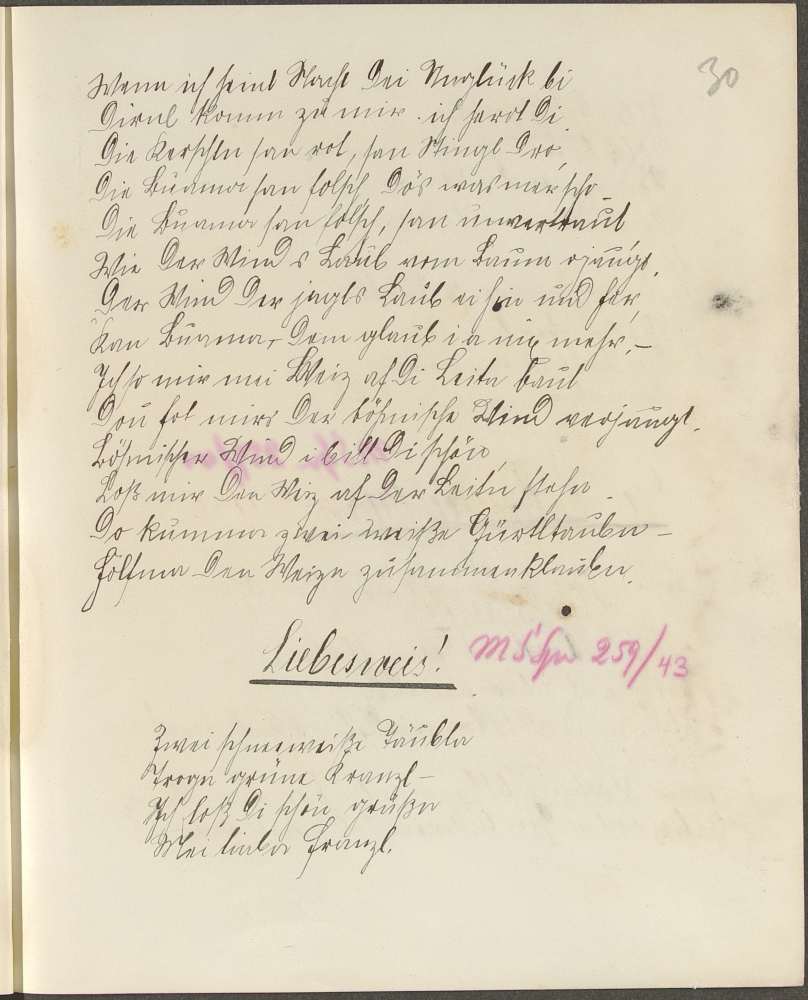 30
Wenn ich heint Nacht Dei Unglück bi
Dirnl komm zu mir. ich hard Di.
Die Kerschln san rot, san Stingl dro,
Die Buama san folsch, Dös was mer scho
Die Buama san folsch, san unvertraut
Wie Der Wind s Laub vom Baum
Der Wind Der jagts Laub hin und her,
Kan Buama, Dem glaub i a nix mehr, –
Ich ho mir mei Weiz af Di Leitn baut
Dou hot mirs Der böhmische Wind verjaugt.
Böhmischer Wind i bitt Di schön,
Loß mir Den Weiz af Der Leitn stehn.
Do kumma zwei weiße Gürtltaubn –
Helfma Den Weizn zusammenklaubn.
Liebesweis! 259/43
Zwei schneeweiße Täubla
Trogn grüne Kranzl –
Ich loß Di schön grüßn
Mei liaba Franzl.